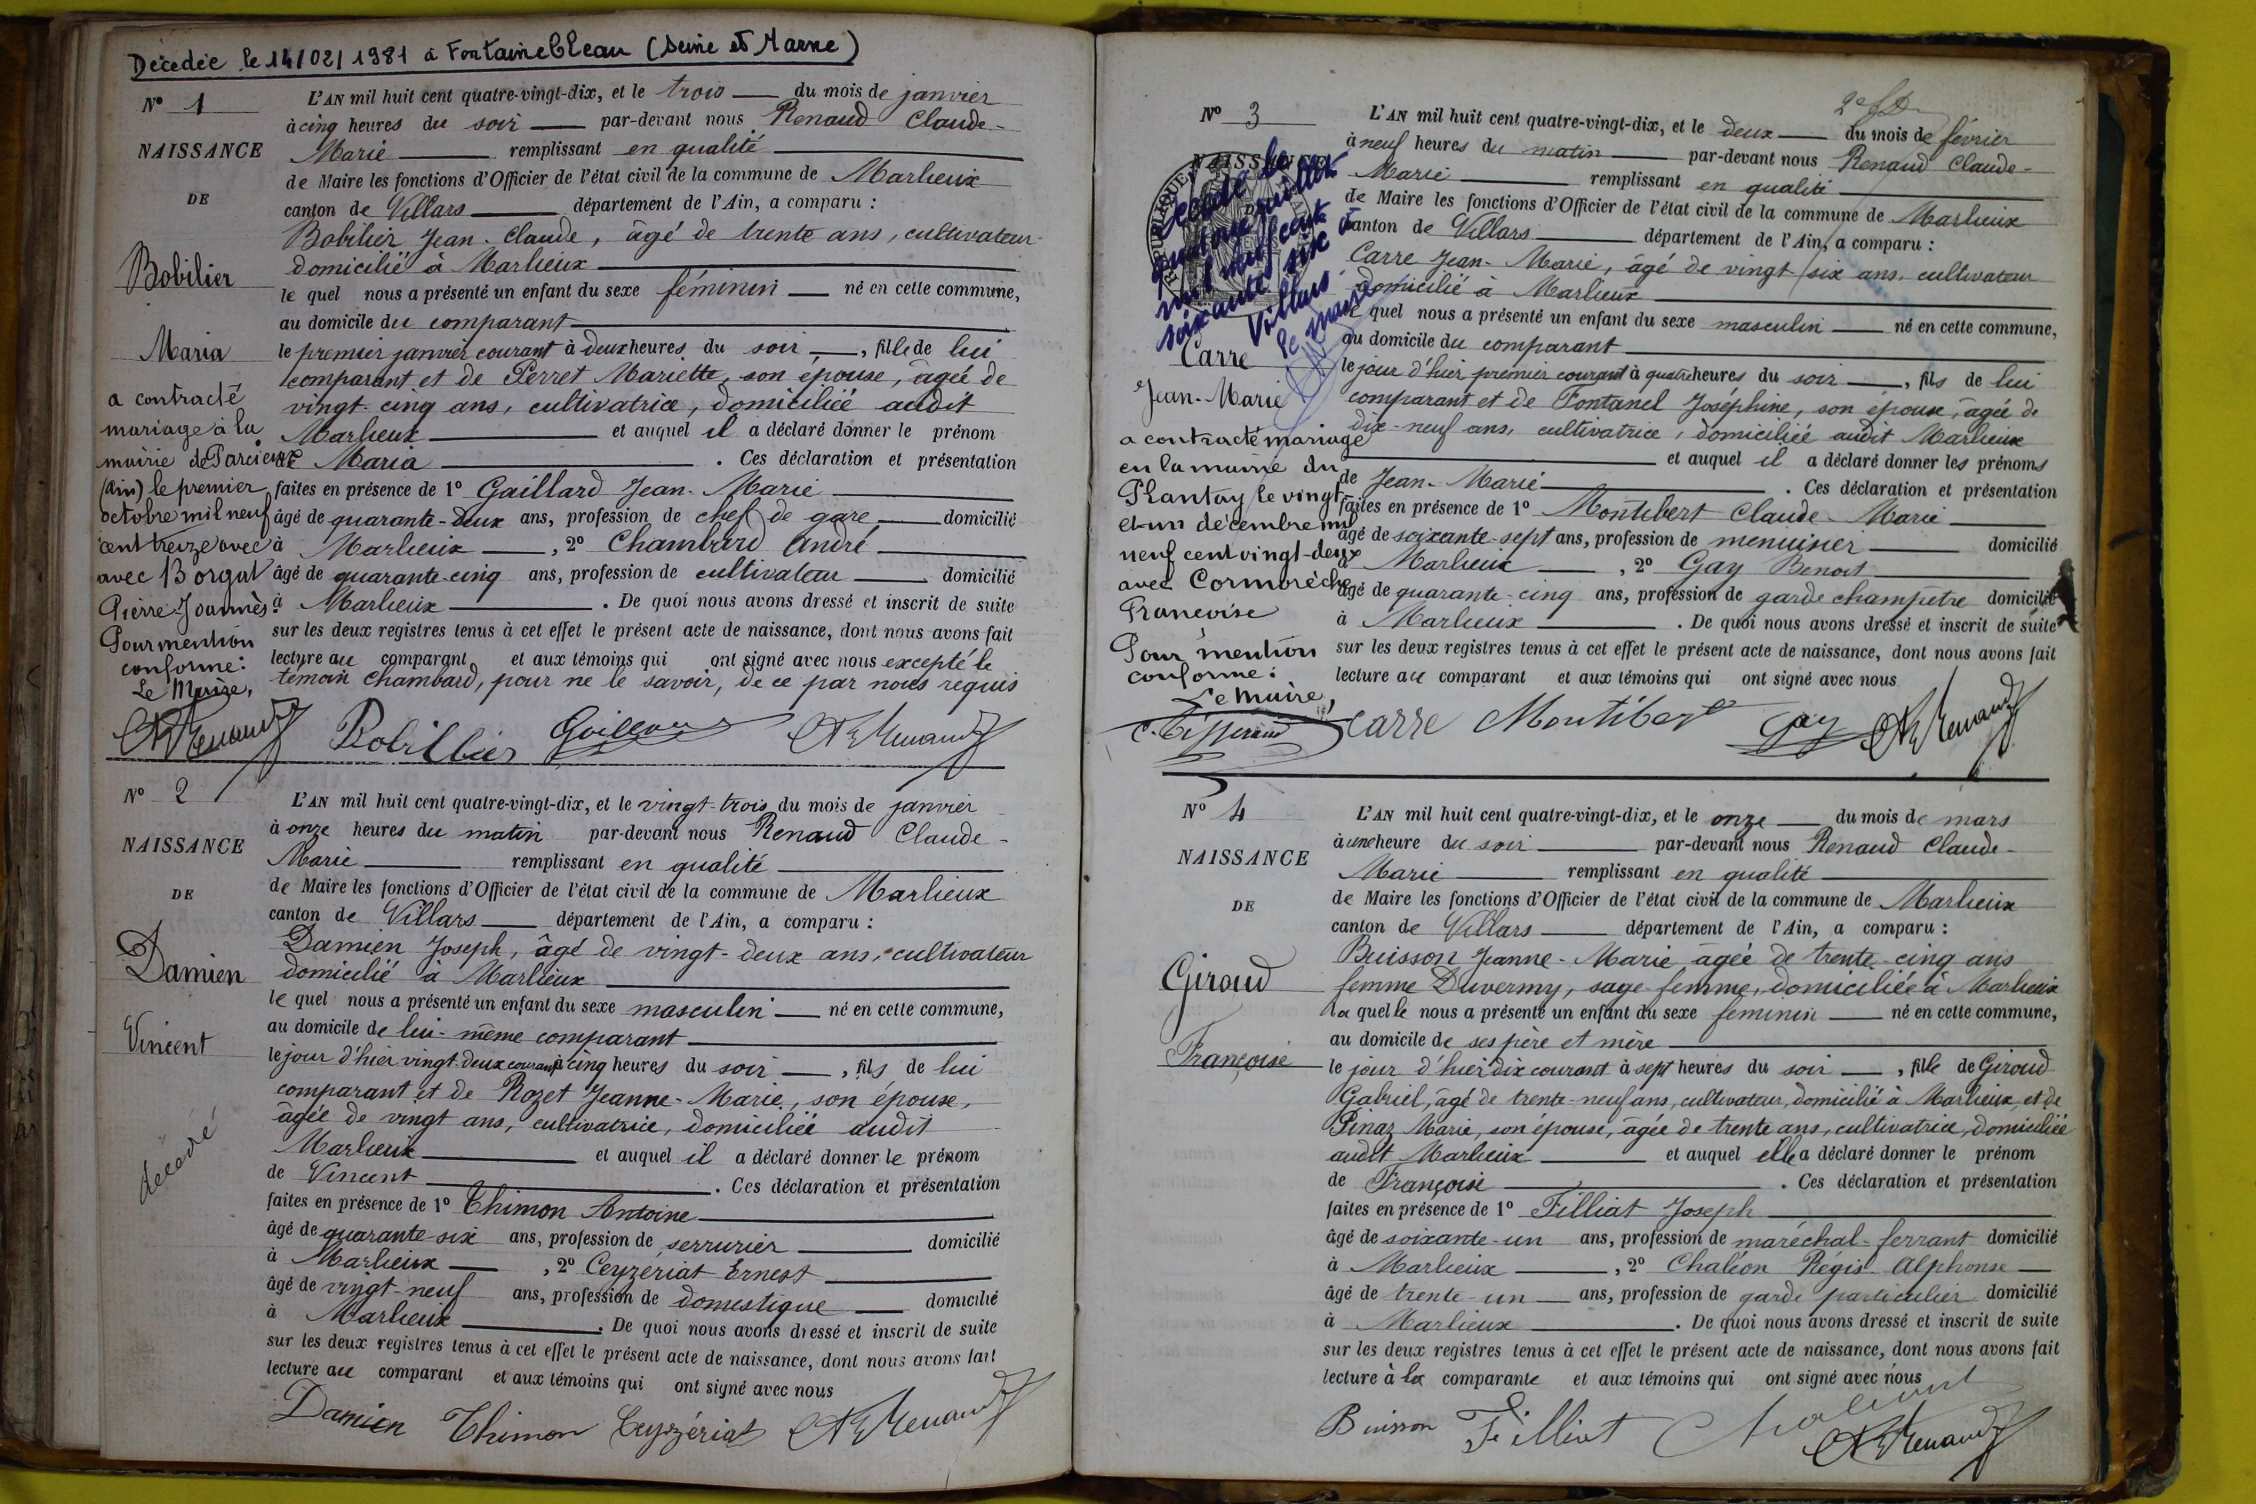 Décédée le 14/02/1981 à Fontainebleau (Seine et Marne)
N° 1
NAISSANCE
DE
Bobilier
Maria
a contracté
mariage à la
mairie de Parcieux
(Ain) le premier
octobre mil neuf
cent treize avec
avec Borgat
Pierre Joannès
Pour mention
conforme:
Le Maire,
L'AN mil huit cent quatre-vingt-dix, et le trois du mois de janvier
à cinq heures du soir par-devant nous Renaud Claude-
Marie remplissant en qualité
de Maire les fonctions d'Officier de l'état civil de la commune de Marlieux
canton de Villars département de l'Ain, a comparu :
Bobilier Jean-Claude, âgé de trente ans, cultivateur
domicilié à Marlieux
le quel nous a présenté un enfant du sexe féminin né en cette commune,
au domicile du comparant
le premier janvier courant à deux heures du soir, fille de lui
comparant et de Perret Mariette, son épouse, âgée de
vingt-cinq ans, cultivatrice, domiciliée audit
Marlieux et auquel il a déclaré donner le prénom
de Maria . Ces déclaration et présentation
faites en présence de 1° Gaillard Jean-Marie
âgé de quarante-deux ans, profession de chef de gare domicilié
à Marlieux , 2° Chambard André
âgé de quarante-cinq ans, profession de cultivateur domicilié
à Marlieux . De quoi nous avons dressé et inscrit de suite
sur les deux registres tenus à cet effet le présent acte de naissance, dont nous avons fait
lecture au comparant et aux témoins qui ont signé avec nous excepté le
témoin Chambard, pour ne le savoir, de ce par nous requis
Renaud Bobillier Gaillard Renaud
N° 2
NAISSANCE
DE
Damien
Vincent
décédé
L'AN mil huit cent quatre-vingt-dix, et le vingt-trois du mois de janvier
à onze heures du matin par-devant nous Renaud Claude-
Marie remplissant en qualité
de Maire les fonctions d'Officier de l'état civil de la commune de Marlieux
canton de Villars département de l'Ain, a comparu :
Damien Joseph, âgé de vingt-deux ans, cultivateur
domicilié à Marlieux
le quel nous a présenté un enfant du sexe masculin né en cette commune,
au domicile de lui-même comparant
le jour d'hier vingt-deux courant à cinq heures du soir, fils de lui
comparant et de Rozet Jeanne-Marie, son épouse,
âgée de vingt ans, cultivatrice, domiciliée audit
Marlieux et auquel il a déclaré donner le prénom
de Vincent . Ces déclaration et présentation
faites en présence de 1° Thimon Antoine
âgé de quarante-six ans, profession de serrurier domicilié
à Marlieux , 2° Ceyzeriat Ernest
âgé de vingt-neuf ans, profession de domestique domicilié
à Marlieux . De quoi nous avons dressé et inscrit de suite
sur les deux registres tenus à cet effet le présent acte de naissance, dont nous avons fait
lecture au comparant et aux témoins qui ont signé avec nous
Damien Thimon Ceyzériat Renaud
N° 3
NAISSANCE
Décédé le
quinze juillet
mil neuf cent
soixante six à
Villars
le maire
Carre
Jean-Marie
a contracté mariage
en la mairie du
Plantay le vingt-
et-un décembre mil
neuf cent vingt-deux
avec Cormorèche
Françoise
Pour mention
conforme:
Le Maire,
2e
L'AN mil huit cent quatre-vingt-dix, et le deux du mois de février
à neuf heures du matin par-devant nous Renaud Claude-
Marie remplissant en qualité
de Maire les fonctions d'Officier de l'état civil de la commune de Marlieux
canton de Villars département de l'Ain, a comparu :
Carre Jean-Marie, âgé de vingt-six ans, cultivateur
domicilié à Marlieux
le quel nous a présenté un enfant du sexe masculin né en cette commune,
au domicile du comparant
le jour d'hier premier courant à quatre heures du soir, fils de lui
comparant et de Fontanel Joséphine, son épouse, âgée de
dix-neuf ans, cultivatrice, domiciliée audit Marlieux
et auquel il a déclaré donner les prénoms
de Jean-Marie . Ces déclaration et présentation
faites en présence de 1° Montibert Claude-Marie
âgé de soixante-sept ans, profession de menuisier domicilié
à Marlieux , 2° Gay Benoit
âgé de quarante-cinq ans, profession de garde champêtre domicilié
à Marlieux . De quoi nous avons dressé et inscrit de suite
sur les deux registres tenus à cet effet le présent acte de naissance, dont nous avons fait
lecture au comparant et aux témoins qui ont signé avec nous
Carre Montibert Gay Renaud
N° 4
NAISSANCE
DE
Giroud
Françoise
L'AN mil huit cent quatre-vingt-dix, et le onze du mois de mars
à une heure du soir par-devant nous Renaud Claude-
Marie remplissant en qualité
de Maire les fonctions d'Officier de l'état civil de la commune de Marlieux
canton de Villars département de l'Ain, a comparu :
Buisson Jeanne-Marie, âgée de trente-cinq ans
femme Duvermy, sage-femme, domiciliée à Marlieux
la quelle nous a présenté un enfant du sexe féminin né en cette commune,
au domicile de ses père et mère
le jour d'hier dix courant à sept heures du soir, fille de Giroud
Gabriel, âgé de trente-neuf ans, cultivateur, domicilié à Marlieux, et de
Pinaz Marie, son épouse, âgée de trente ans, cultivatrice, domiciliée
audit Marlieux et auquel elle a déclaré donner le prénom
de Françoise . Ces déclaration et présentation
faites en présence de 1° Filliat Joseph
âgé de soixante-un ans, profession de maréchal-ferrant domicilié
à Marlieux , 2° Chaléon Régis-Alphonse
âgé de trente-un ans, profession de garde particulier domicilié
à Marlieux . De quoi nous avons dressé et inscrit de suite
sur les deux registres tenus à cet effet le présent acte de naissance, dont nous avons fait
lecture à la comparante et aux témoins qui ont signé avec nous
Buisson Filliat Renaud